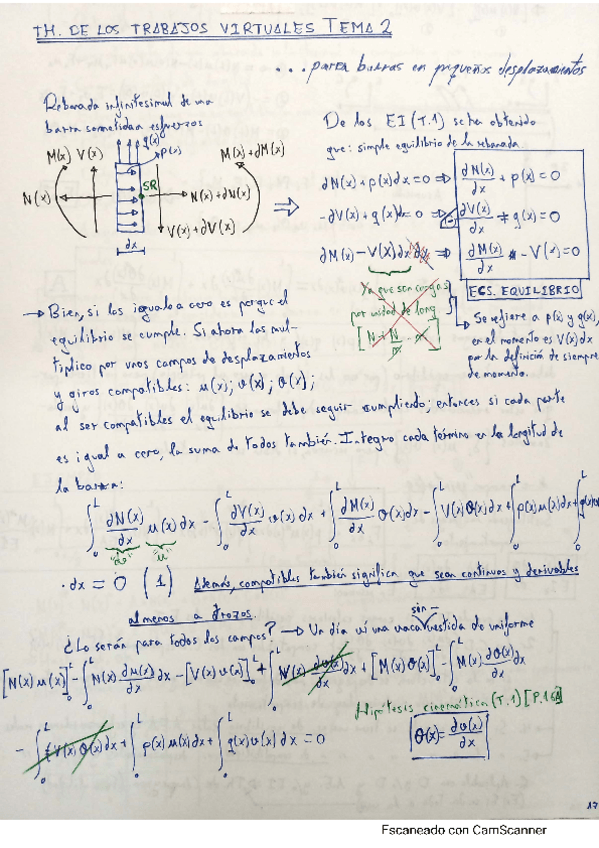 TH. DE LOS TRABAJOS VIRTUALES TEMA 2
...para barras en pequeños desplazamientos
Rebanada infinitesimal de una
barra sometida a esfuerzos
q(x)
p(x)
M(x) V(x)
M(x)+dM(x)
N(x)
SR
N(x)+dN(x)
V(x)+dV(x)
dx
De los EI (T.1) se ha obtenido
que: simple equilibrio de la rebanada
dN(x)+p(x)dx=0 ⇒ dN(x)/dx + p(x)=0
-dV(x)+q(x)dx=0 ⇒ dV(x)/dx q(x)=0
dM(x)-V(x)dx ⇒ dM(x)/dx - V(x)=0
ECS. EQUILIBRIO
Ya que son cargas
por unidad de long
[N + N/m · m]
→ Se refiere a p(x) y q(x),
en el momento es V(x)dx
por la definición de siempre
de momento.
→ Bien, si los igualo a cero es porque el
equilibrio se cumple. Si ahora los mul-
tiplico por unos campos de desplazamientos
y giros compatibles: u(x); v(x); θ(x);
al ser compatibles el equilibrio se debe seguir cumpliendo; entonces si cada parte
es igual a cero, la suma de todos también. Integro cada término en la longitud de
la barra:
∫₀ᴸ dN(x)/dx u(x)dx - ∫₀ᴸ dV(x)/dx v(x)dx + ∫₀ᴸ dM(x)/dx θ(x)dx - ∫₀ᴸ V(x)θ(x)dx + ∫₀ᴸ p(x)u(x)dx + ∫₀ᴸ q(x)v(x)
·dx = 0 (1) Además, compatibles también significa que sean continuos y derivables
almenos a trozos.
sin -
¿Lo serán para todos los campos? → Un día vi una vaca vestida de uniforme
[N(x)u(x)]₀ᴸ - ∫₀ᴸ N(x) du(x)/dx dx - [V(x)v(x)]₀ᴸ + ∫₀ᴸ V(x) dv(x)/dx dx + [M(x)θ(x)]₀ᴸ - ∫₀ᴸ M(x) dθ(x)/dx dx
- ∫₀ᴸ V(x)θ(x)dx + ∫₀ᴸ p(x)u(x)dx + ∫₀ᴸ q(x)v(x)dx = 0
Hipótesis cinemática (T.1)
θ(x) = dv(x)/dx
17
Escaneado con CamScanner